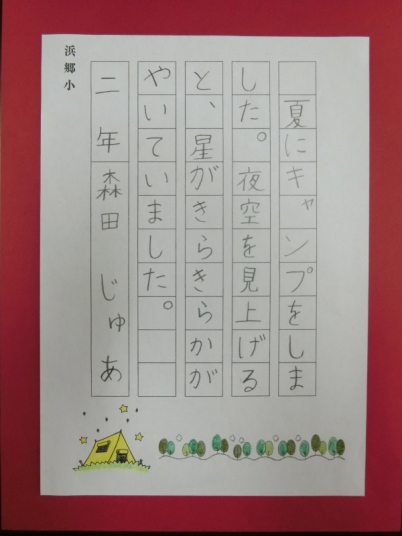 夏にキャンプをしま
した。夜空を見上げる
と、星がきらきらかが
やいていました。
二年 森田 じゅあ
浜郷小